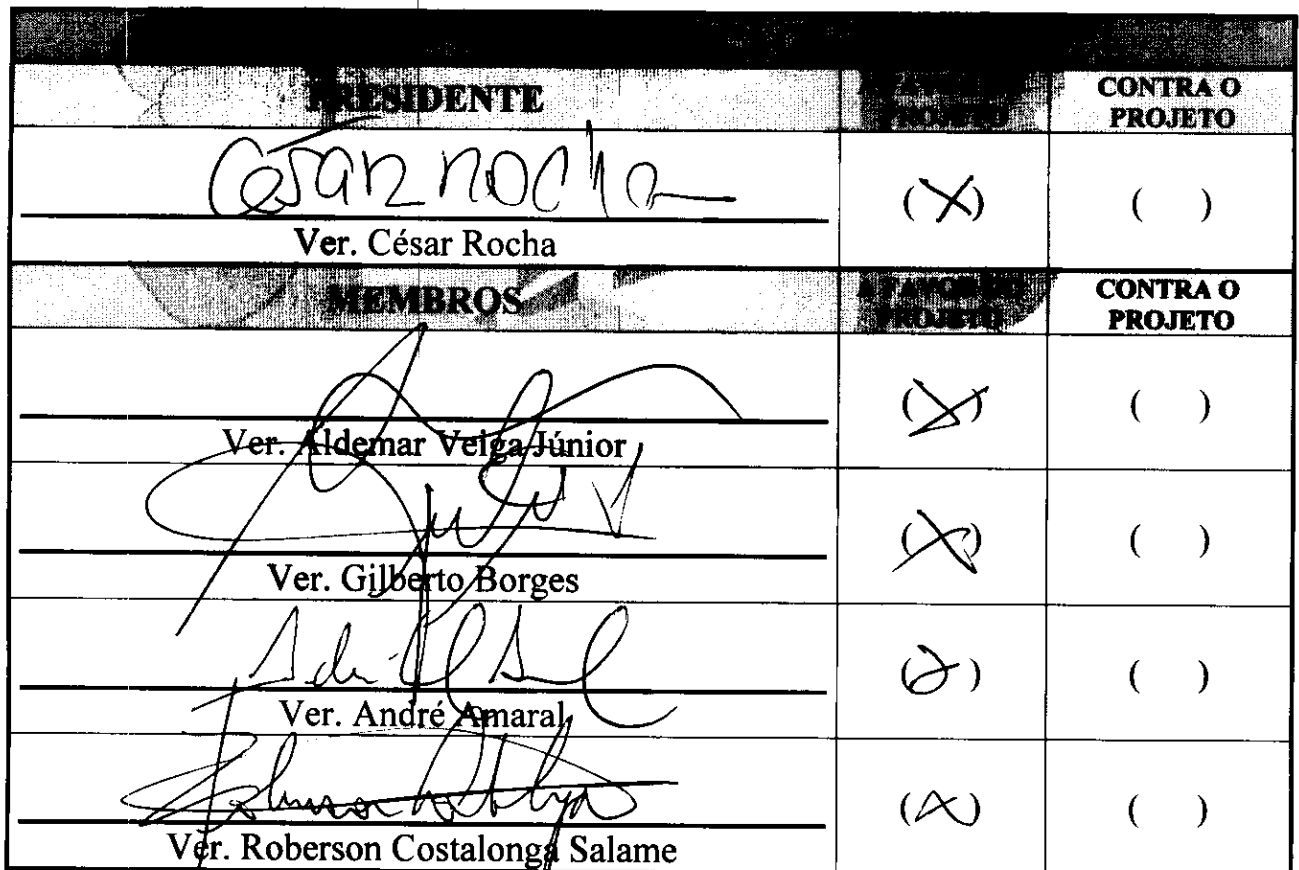 PRESIDENTE A FAVOR DO PROJETO CONTRA O PROJETO
César Rocha (X) ( )
Ver. César Rocha
MEMBROS A FAVOR DO PROJETO CONTRA O PROJETO
(X) ( )
Ver. Aldemar Veiga Júnior
(X) ( )
Ver. Gilberto Borges
(X) ( )
Ver. André Amaral
(X) ( )
Ver. Roberson Costalonga Salame